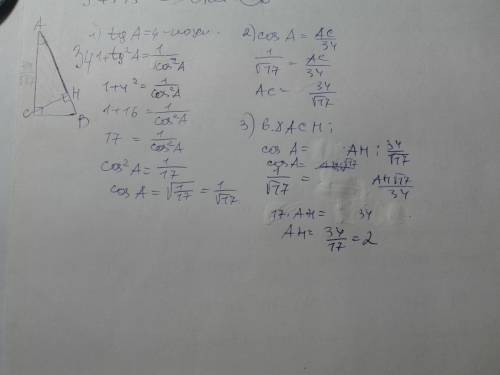 A
34
C
H
B
1) tg A = 4
1 + tg²A = 1/cos²A
1 + 4² = 1/cos²A
1 + 16 = 1/cos²A
17 = 1/cos²A
cos²A = 1/17
cos A = √1/17 = 1/√17
2) cos A = AC/34
1/√17 = AC/34
AC = 34/√17
3) в ΔACH:
cos A = AH : 34/√17
cos A =
1/√17 = AH√17/34
17·AH = 34
AH = 34/17 = 2